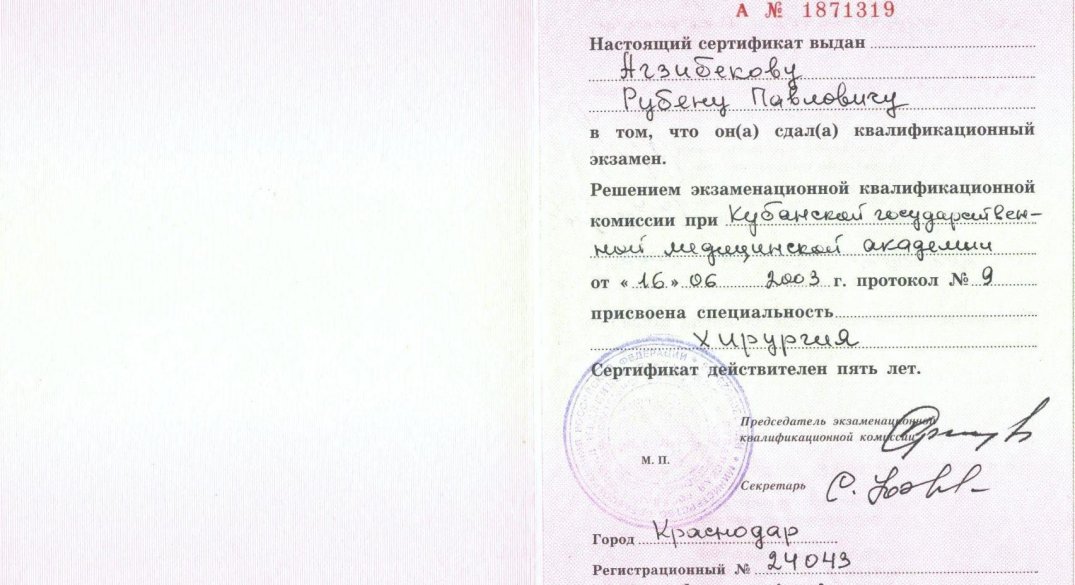 А № 1871319
Настоящий сертификат выдан
Агзибекову
Рубену Павловичу
в том, что он(а) сдал(а) квалификационный
экзамен.
Решением экзаменационной квалификационной
комиссии при Кубанской государствен-
ной медицинской академии
от «16» 06 2003 г. протокол № 9
присвоена специальность
хирургия
Сертификат действителен пять лет.
Председатель экзаменационной
квалификационной комиссии
М. П.
Секретарь
Город Краснодар
Регистрационный № 24043